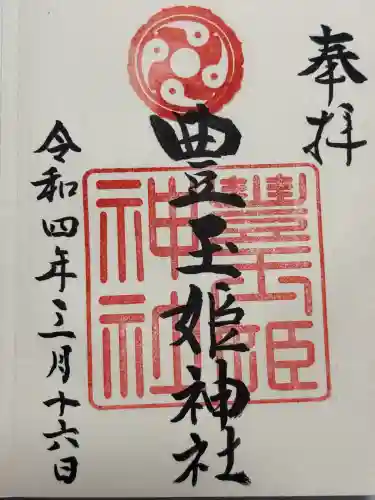 奉拝
豊玉姫神社
豊玉姫
神社
令和四年三月十六日